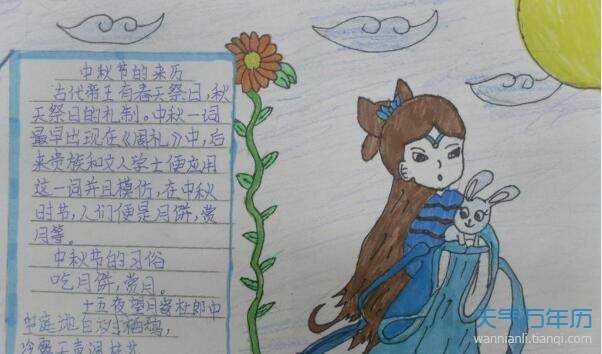 中秋节的来历
古代帝王有春天祭日,秋
天祭日的礼制。中秋一词
最早出现在《周礼》中,后
来贵族和文人学士便应用
这一词并且模仿,在中秋
时节,人们便是月饼,赏
月等。
中秋节的习俗
吃月饼,赏月。
十五夜望月寄杜郎中
中庭地白
冷露无声湿桂花
天气万年历
wannianli.tianqi.com